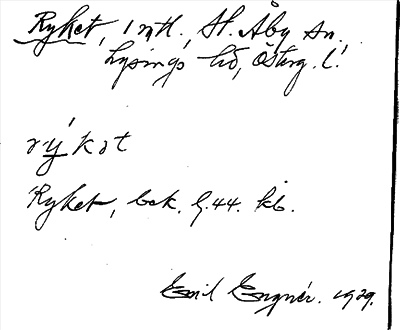 Ryket, 1 mtl., St. Åby sn.,
Lysings hd, Österg. l.
rýkət
Ryket, bek. g. 44. kb.
Emil Engnér. 1929.